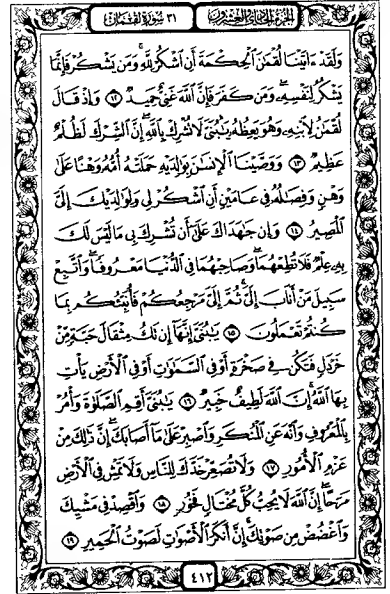 الجزء الحادي والعشرون ٣١ سورة لقمان
وَلَقَدْ ءَاتَيْنَا لُقْمَٰنَ ٱلْحِكْمَةَ أَنِ ٱشْكُرْ لِلَّهِ وَمَن يَشْكُرْ فَإِنَّمَا
يَشْكُرُ لِنَفْسِهِۦ وَمَن كَفَرَ فَإِنَّ ٱللَّهَ غَنِىٌّ حَمِيدٌ ١٢ وَإِذْ قَالَ
لُقْمَٰنُ لِٱبْنِهِۦ وَهُوَ يَعِظُهُۥ يَٰبُنَىَّ لَا تُشْرِكْ بِٱللَّهِ إِنَّ ٱلشِّرْكَ لَظُلْمٌ
عَظِيمٌ ١٣ وَوَصَّيْنَا ٱلْإِنسَٰنَ بِوَٰلِدَيْهِ حَمَلَتْهُ أُمُّهُۥ وَهْنًا عَلَىٰ
وَهْنٍ وَفِصَٰلُهُۥ فِى عَامَيْنِ أَنِ ٱشْكُرْ لِى وَلِوَٰلِدَيْكَ إِلَىَّ
ٱلْمَصِيرُ ١٤ وَإِن جَٰهَدَاكَ عَلَىٰٓ أَن تُشْرِكَ بِى مَا لَيْسَ لَكَ
بِهِۦ عِلْمٌ فَلَا تُطِعْهُمَا وَصَاحِبْهُمَا فِى ٱلدُّنْيَا مَعْرُوفًا وَٱتَّبِعْ
سَبِيلَ مَنْ أَنَابَ إِلَىَّ ثُمَّ إِلَىَّ مَرْجِعُكُمْ فَأُنَبِّئُكُم بِمَا
كُنتُمْ تَعْمَلُونَ ١٥ يَٰبُنَىَّ إِنَّهَآ إِن تَكُ مِثْقَالَ حَبَّةٍ مِّنْ
خَرْدَلٍ فَتَكُن فِى صَخْرَةٍ أَوْ فِى ٱلسَّمَٰوَٰتِ أَوْ فِى ٱلْأَرْضِ يَأْتِ
بِهَا ٱللَّهُ إِنَّ ٱللَّهَ لَطِيفٌ خَبِيرٌ ١٦ يَٰبُنَىَّ أَقِمِ ٱلصَّلَوٰةَ وَأْمُرْ
بِٱلْمَعْرُوفِ وَٱنْهَ عَنِ ٱلْمُنكَرِ وَٱصْبِرْ عَلَىٰ مَآ أَصَابَكَ إِنَّ ذَٰلِكَ مِنْ
عَزْمِ ٱلْأُمُورِ ١٧ وَلَا تُصَعِّرْ خَدَّكَ لِلنَّاسِ وَلَا تَمْشِ فِى ٱلْأَرْضِ
مَرَحًا إِنَّ ٱللَّهَ لَا يُحِبُّ كُلَّ مُخْتَالٍ فَخُورٍ ١٨ وَٱقْصِدْ فِى مَشْيِكَ
وَٱغْضُضْ مِن صَوْتِكَ إِنَّ أَنكَرَ ٱلْأَصْوَٰتِ لَصَوْتُ ٱلْحَمِيرِ ١٩
٤١٢